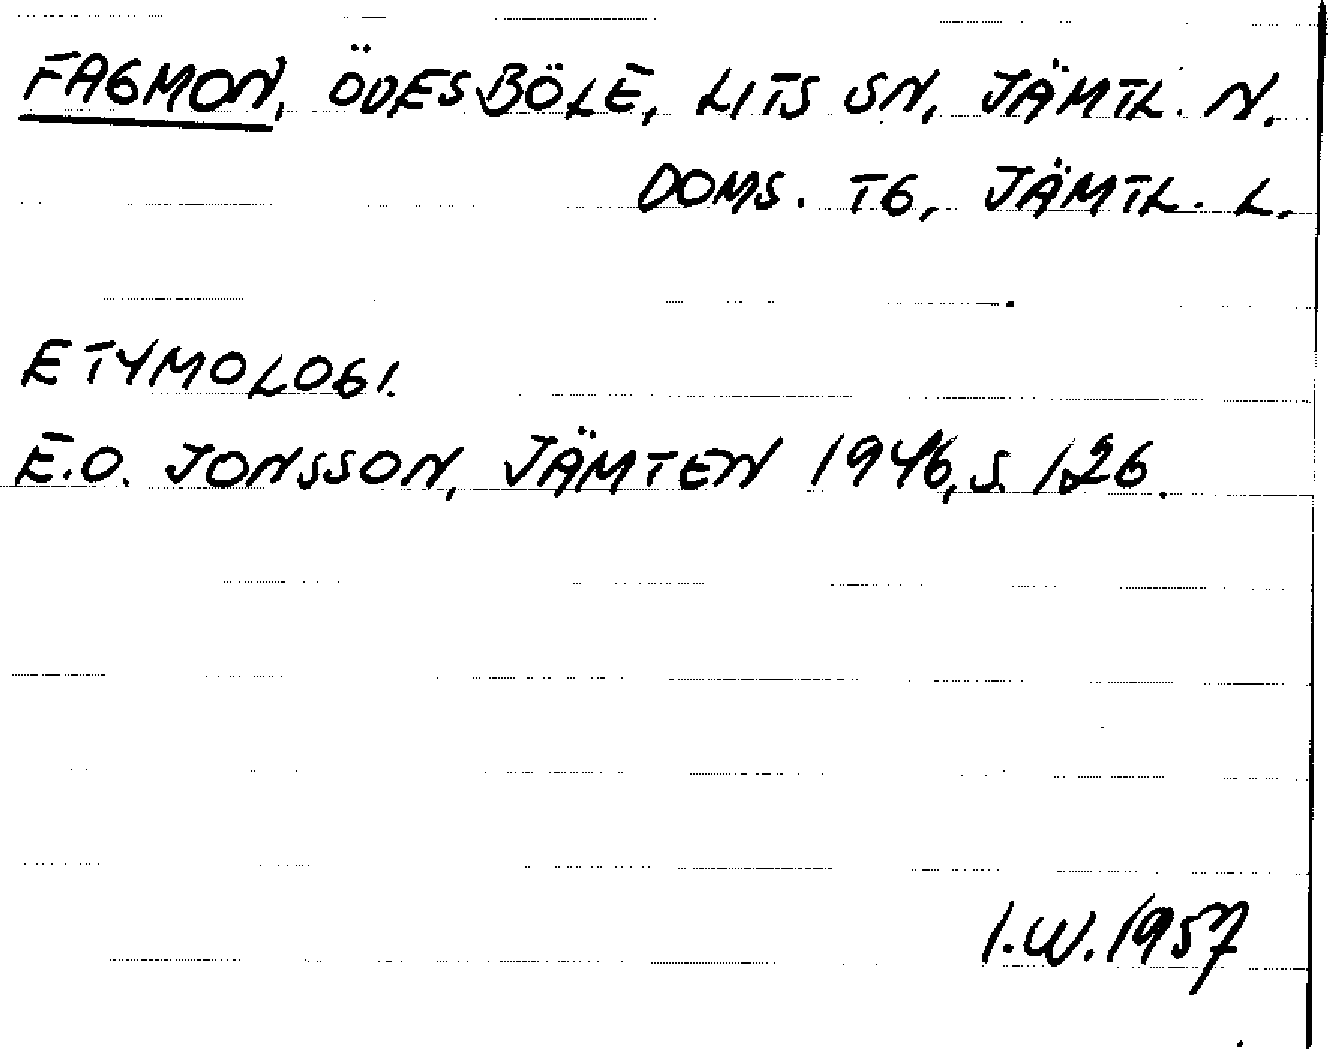 FAGMON, ÖDESBÖLE, LITS SN, JÄMTL. N.
DOMS. TG, JÄMTL. L.
ETYMOLOGI.
E.O. JONSSON, JÄMTEN 1946, S. 126.
I.W. 1957